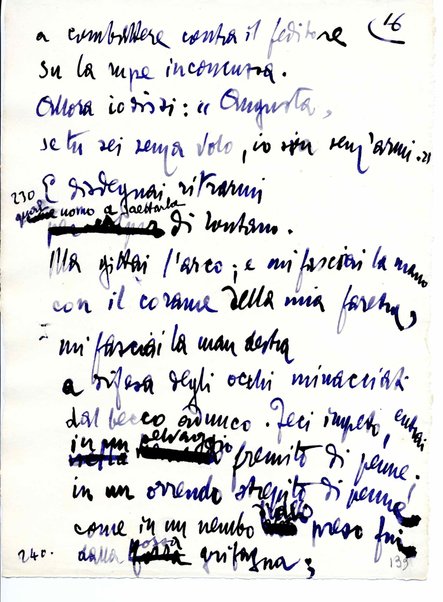 16
a combattere contra il feditore
su la rupe inconcussa.
Allora io dissi: "Augusta,
se tu sei senza volo, io son senz'armi."
230 E disdegnai ritrarmi
quasi uomo a saettarla
di lontano.
Ma gittai l'arco; e mi fasciai la mano
con il corame della mia faretra,
mi fasciai la man destra
a difesa degli occhi minacciati
dal becco adunco. Feci impeto, entrai
in un selvaggio
fremito di penne!
in un orrendo strepito di penne
come in un nembo preso fui
240. dalla grifagna;
139